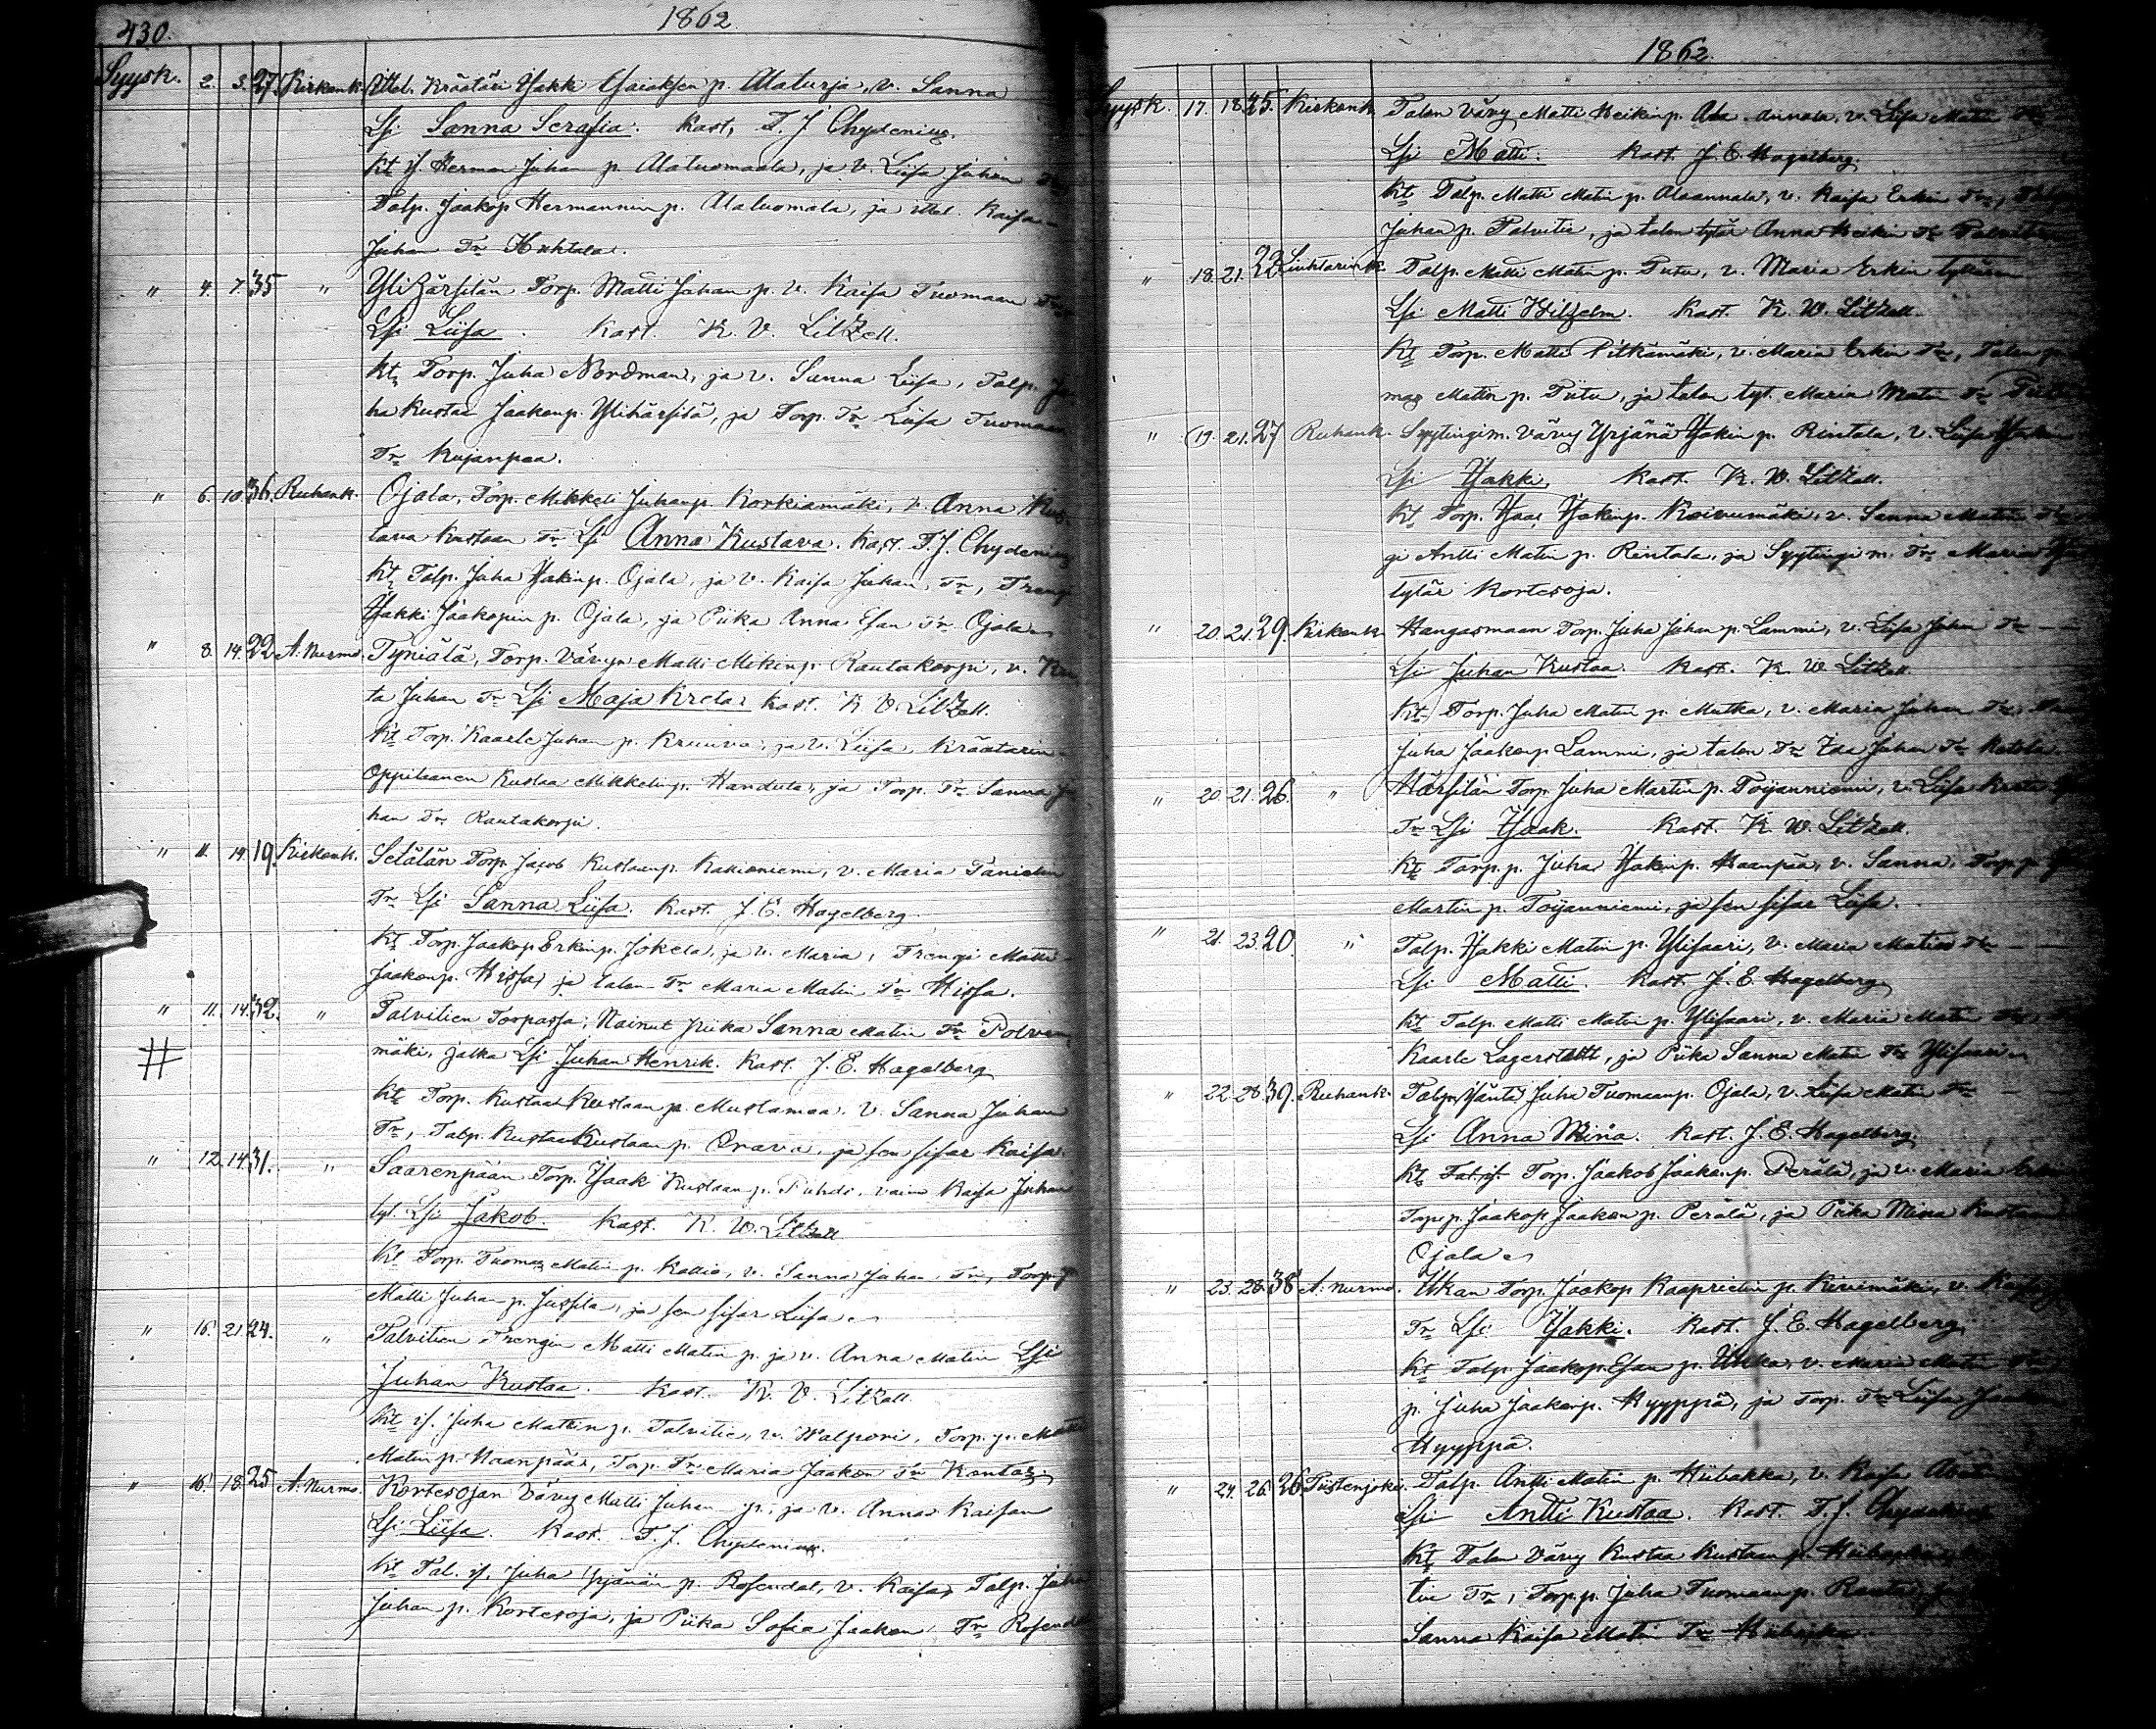 430.
1862.
Syysk. 2. 3. 27. Kirkonk. Ittel. Kräätäri Yakki p. Alaturja, v. Sanna
Lsi Sanna Serafia. Kast. T. J. Chydenius.
Kt if. Herman Juhan p. Alaluomaala, ja v. Liisa Juhan
Talp. Jaakop Hermannin p. Alaluomala, ja ittel. Kaisa
Juhan Tr Huhtala.
" 4. 7. 35 " Yli Härsilän Torp. Matti Johan p. v. Kaisa Tuomaan
Lsi Liisa. Kast. K. V. Litzell.
Kt Torp. Juha Nordman, ja v. Sanna Liisa, Talp.
ha Kustaa Jaakon p. Ylihärsilä, ja Torp. Tr Liisa Tuomaan
Tr Kujanpaa.
" 6. 10. 36. Ruhank. Ojala, Torp. Mikkeli Juhan p. Korkiamäki, v. Anna Kus-
tava Kustaan Tr Lsi Anna Kustava. Kast. T. J. Chydenius
Kt Talp. Juha Yakin p. Ojala, ja v. Kaisa Juhan Tr, Trengi
Yakki Jaakopin p. Ojala, ja Piika Anna Esan Tr Ojala
" 8. 14. 22 A. Nurmo. Tyniälä, Torp. Vävyn Matti Mikin p. Rautakorpi, v.
ta Juhan Tr Lsi Maja Kreta. Kast. K V. Litzell.
Kt Torp. Kaarle Juhan p. Kruuva, ja v. Liisa, Kräätarin
Oppilaanen Kustaa Mikkelin p. Handula, ja Torp. Tr Sanna Ju
han Tr Rautakorpi.
" 11. 14. 19. Kirkonk. Setälän Torp. Jacob Kustaan p. Kakioniemi, v. Maria Tanielin
Tr Lsi Sanna Liisa. Kast. J. E. Hagelberg.
Kt Torp. Jaakop Erkin p. Jokela, ja v. Maria, Trengi Matti
Jaakon p. Hissa, ja talon Tr Maria Matin Tr Hissa.
" 11. 14. 32. " Talvitien Torpassa, Nainut piika Sanna Matin Tr Polven
# mäki, jalka Lsi Juhan Henrik. Kast. J. E. Hagelberg
Kt Torp. Kustaa Kustaan p. Mustamaa. v. Sanna Juhan
Tr, Talp. Kustaa Kustaan p. Orava, ja sen sisar Kaisa.
" 12. 14. 31. " Saarenpään Torp. Ysaak Kustaan p. Puhdi, vaimo Kaisa Juhan
tyt. Lsi Jakob. Kast. K. W. Litzell
Kt Torp. Tuomas Matin p. Kallio, v. Sanna Juhan Tr, Torp. p
Matti Juhan p. Jussila, ja sen sisar Liisa.
" 16. 21. 24. " Talvitien Trengin Matti Matin p. ja v. Anna Matin Lsi
Juhan Kustaa. Kast. K. V. Litzell.
Kt if. Juha Mattin p. Talvitie, v. Walpori, Torp. p. Matti
Matin p. Haanpää, Torp. Tr Maria Jaakon Tr Kontas
" 16. 18. 25 A. Nurmo. Kortesojan Vävy Matti Juhan p. ja v. Anna Kaisan
Lsi Liisa. Kast. T. J. Chydenius.
Kt Tal. if. Juha Yrjänän p. Rosendal, v. Kaisa, Talp. Juha
Juhan p. Kortesoja, ja Piika Sofia Jaakon Tr Rosendal
1862.
Syysk. 17. 18. 25. Kirkonk. Talon Vävy Matti Heikin p. Ala-annala, v. Liisa Matin
Lsi Matti. Kast. J. E. Hagelberg.
Kt Talp. Matti Matin p. Alaannala, v. Kaisa Erkin Tr,
Juhan p. Talvitie, ja talon tytär Anna Heikin Tr Talvitie
" 18. 21. 23 Liuhtarink. Talp. Matti Matin p. Tutu, v. Maria Erkin tyttären
Lsi Matti Wilhelm. Kast. K. W. Litzell.
Kt Torp. Matti Pitkämäki, v. Maria Erkin Tr, Talon
mas Mattin p. Tutu, ja talon tyt. Maria Matin Tr
" 19. 21. 27 Ruhank. Syytingim. vävy Yrjänä Yakin p. Rintala, v. Liisa
Lsi Yakki, Kast. K. W. Litzell.
Kt Torp. Yakin p. Koivumäki, v. Sanna Matin
gi Antti Matin p. Rintala, ja Syytingi m. Tr Maria
tytär Kortesoja.
" 20. 21. 29. Kirkonk. Hangasmaan Torp. Juha Juhan p. Lammi, v. Liisa Juhan Tr
Lsi Juhan Kustaa. Kast. K. W. Litzell.
Kt Torp. Juha Matin p. Mutka, v. Maria Juhan Tr,
Juha Jaakon p. Lammi, ja talon Tr Juhan Tr Ketola.
" 20. 21. 26. " Härsilän Torp. Juha Martin p. Toijanniemi, v. Liisa
Tr Lsi Ysaak. Kast. K. W. Litzell.
Kt Torp. p. Juha Yakin p. Haanpää, v. Sanna, Torp. p.
Martin p. Toijanniemi, ja sen sisar Liisa.
" 21. 23. 20. " Talp. Yakki Matin p. Ylisaari, v. Maria Matin Tr
Lsi Matti. Kast. J. E. Hagelberg
Kt Talp. Matti Matin p. Ylisaari, v. Maria Matin
Kaarle Lagerstett, ja Piika Sanna Matin Tr Ylisaari
" 22. 28. 39. Ruhank. Talp. Yänti Juha Tuomaan p. Ojala, v. Liisa Matin Tr
Lsi Anna Miina. Kast. J. E. Hagelberg.
Kt Torp. Jaakob Jaakon p. Perälä, ja v. Maria
Torp p. Jaakop Jaakon p. Perälä, ja Piika Miina Kustaan
Ojala
" 23. 28. 38 A. Nurmo. Ukan Torp. Jaakop Kaaprielin p. Kivimäki, v.
Tr Lsi Yakki. Kast. J. E. Hagelberg.
Kt Talp. Jaakop Esan p. Ukka, v. Maria Matin
p. Juha Jaakon p. Hyyppä, ja Torp. Tr Liisa
Hyyppä.
" 24. 26. 26 Tiistenjoki. Talp. Antti Matin p. Hiibakka, v. Kaisa
Lsi Antti Kustaa. Kast. T. J. Chydenius
Kt Talon Vävy Kustaa Kustaan p.
tin Tr, Torp. p. Juha Tuomaan p.
Sanna Kaisa Matin Tr